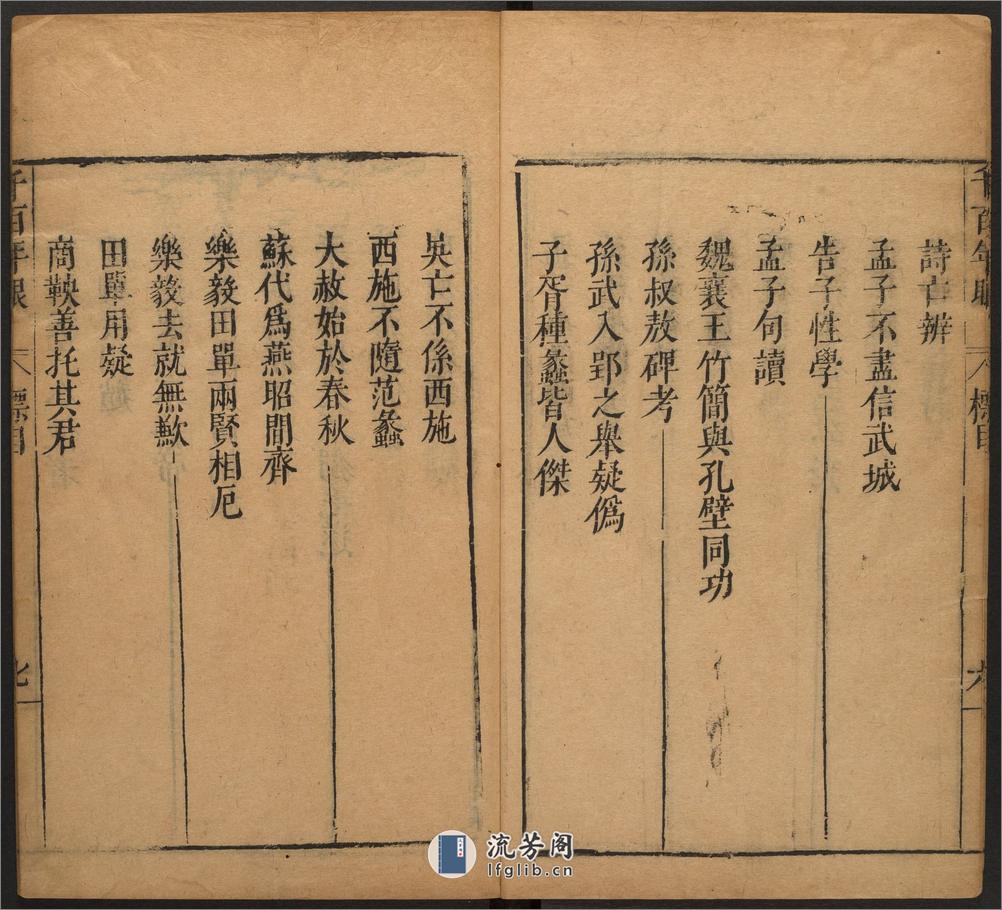 詩亡辨
孟子不盡信武城
告子性學
孟子句讀
魏襄王竹簡與孔壁同功
孫叔敖碑考
孫武入郢之舉疑僞
子胥種蠡皆人傑
吳亡不係西施
西施不隨范蠡
大赦始於春秋
蘇代爲燕昭間齊
樂毅田單兩賢相厄
樂毅去就無歉
田單用疑
商鞅善托其君
標目
七
流芳阁
lfglib.cn